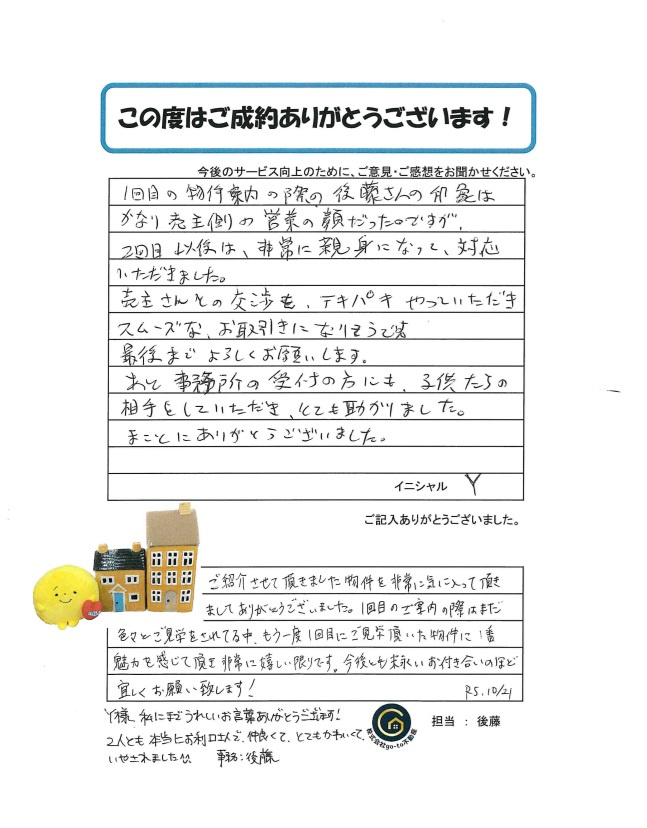 この度はご成約ありがとうございます！
今後のサービス向上のために、ご意見・ご感想をお聞かせください。
1回目の物件案内の際の後藤さんの印象は
かなり売主側の営業の顔だったのですが、
2回目以降は、非常に親身になって、対応
いただきました。
売主さんとの交渉も、テキパキやっていただき
スムーズな、お取引きになりそうです
最後までよろしくお願いします。
あと事務所の受付の方にも、子供たちの
相手をしていただき、とても助かりました。
まことにありがとうございました。
イニシャル Y
ご記入ありがとうございました。
ご紹介させて頂きました物件を非常に気に入って頂き
ましてありがとうございました。1回目のご案内の際はまだ
色々とご見学をされてる中、もう一度1回目にご見学頂いた物件に1番
魅力を感じて頂き非常に嬉しい限りです。今後とも末永いお付き合いのほど
宜しくお願い致します！ R5.10/21
Y様 私にまでうれしいお言葉ありがとうございます！
2人とも本当にお利口さんで、仲良くて、とてもかわいくて、
いやされました 事務：後藤
株式会社go-to不動産
担当 ： 後藤